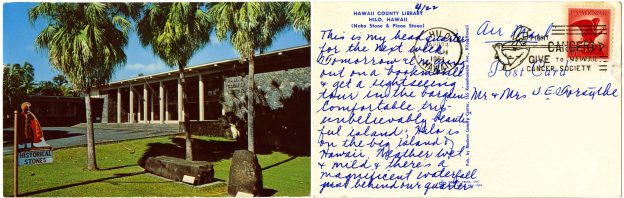 HISTORICAL
STONES
HAWAII COUNTY LIBRARY
HILO, HAWAII
(Naha Stone & Pinao Stone)
4/22
This is my headquarters
for the next week.
Tomorrow I'm
out on a bookmobile
& get a sightseeing
tour in the bargain
Comfortable trip -
unbelievably beauti-
ful island. Hilo is
on the big island of
Hawaii. Weather wet
& mild & there's a
magnificent waterfall
just behind our quarters
HILO
HAWAII
Air Mail
FIGHT
CANCER
GIVE TO
CANCER SOCIETY
Post Card
Mr & Mrs. J E Forsythe